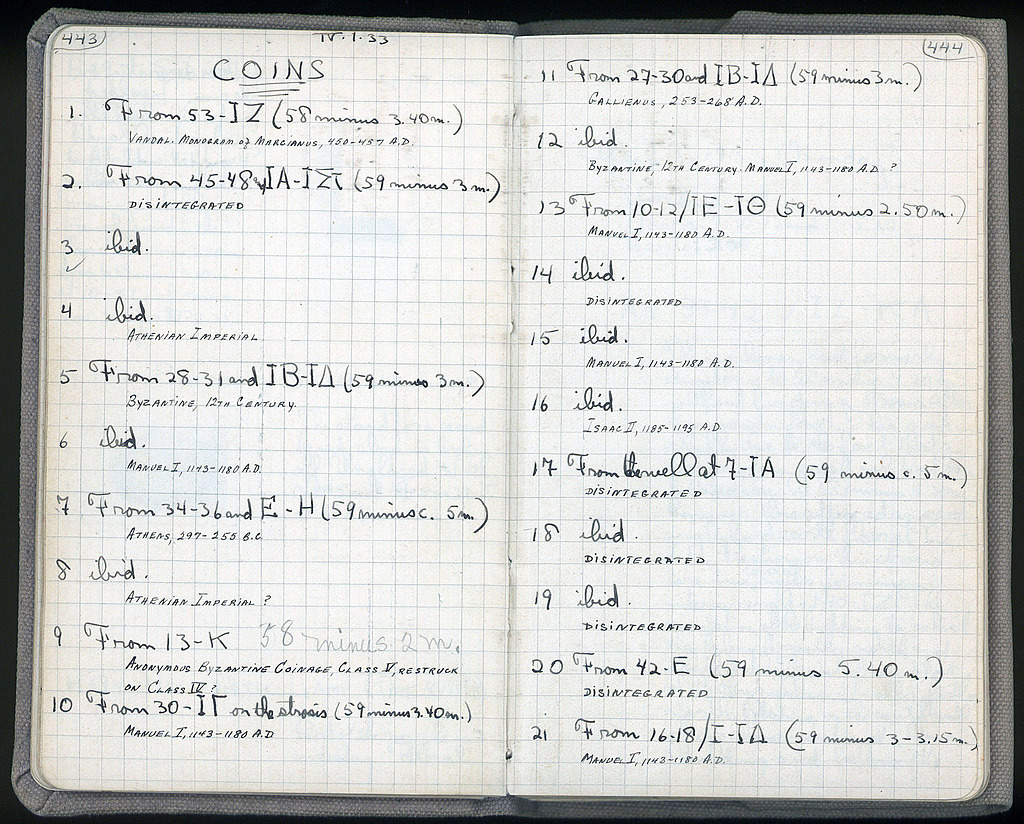 443
IV.1.33
COINS
1. From 53-ΙΖ (58 minus 3.40m.)
VANDAL. MONOGRAM of MARCIANUS, 450-457 A.D.
2. From 45-48 ΙΑ-ΙΣΤ (59 minus 3m.)
DISINTEGRATED
3 ibid.
✓
4 ibid.
ATHENIAN IMPERIAL
5 From 28-31 and ΙΒ-ΙΔ (59 minus 3m.)
BYZANTINE, 12TH CENTURY.
6 ibid.
MANUEL I, 1143-1180 A.D.
7 From 34-36 and Ε-Η (59 minus c. 5m.)
ATHENS, 297-255 B.C.
8 ibid.
ATHENIAN IMPERIAL ?
9 From 13-Κ 58 minus 2m.
ANONYMOUS BYZANTINE COINAGE, CLASS V, RESTRUCK
ON CLASS IV ?
10 From 30-ΙΓ on the strosis (59 minus 3.40m.)
MANUEL I, 1143-1180 A.D.
444
11 From 27-30 and ΙΒ-ΙΔ (59 minus 3m.)
GALLIENUS, 253-268 A.D.
12 ibid.
BYZANTINE, 12TH CENTURY. MANUEL I, 1143-1180 A.D. ?
13 From 10-12/ΙΕ-ΙΘ (59 minus 2.50m.)
MANUEL I, 1143-1180 A.D.
14 ibid.
DISINTEGRATED
15 ibid.
MANUEL I, 1143-1180 A.D.
16 ibid.
ISAAC II, 1185-1195 A.D.
17 From the well at 7-ΙΑ (59 minus c. 5m.)
DISINTEGRATED
18 ibid.
DISINTEGRATED
19 ibid.
DISINTEGRATED
20 From 42-Ε (59 minus 5.40m.)
DISINTEGRATED
21 From 16-18/Ι-ΙΔ (59 minus 3-3.15m.)
MANUEL I, 1143-1180 A.D.